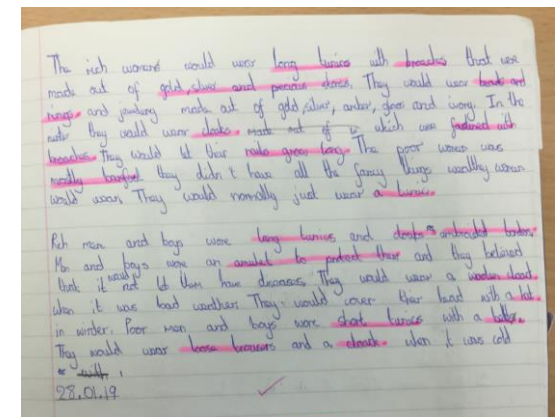 The rich womens would wear long tunics with broaches that were
made out of gold, silver and precious stones. They would wear beads and
rings and jewelery made out of gold, silver, amber, glass and ivory. In the
winter they would wear cloaks made out of which were fastened with
broaches. They would let their nails grow long. The poor women was
mostly barefoot they didn't have all the fancy things wealthy women
would wear. They would normally just wear a tunic.
Rich men and boys wore long tunics and cloaks * embroided borders.
Men and boys wore an amulet to protect them and they believed
that it would not let them have diseases. They would wear a woolen cloak
when it was bad weather. They would cover their head with a hat
in winter. Poor men and boys wore short tunics with a belt.
They would wear loose trousers and a cloak when it was cold
* with
28.01.19